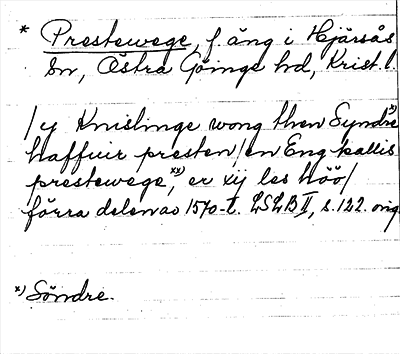 * Prestewege, f. äng i Hjärsås
sn, Östra Göinge hd, Krist. l.
/y Knislinge wong then Syndre x)
haffuir presten /en Eng kallis
prestewege, xx) er xij les höö/
förra delen av 1570-t. LSLB II, s. 122. orig
x) Söndre.